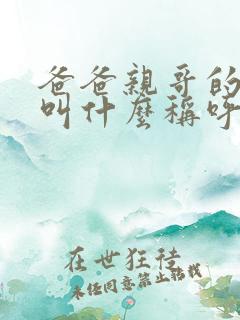 爸爸親哥的
叫什麼稱呼
在世狂徒
未经同意禁止转载